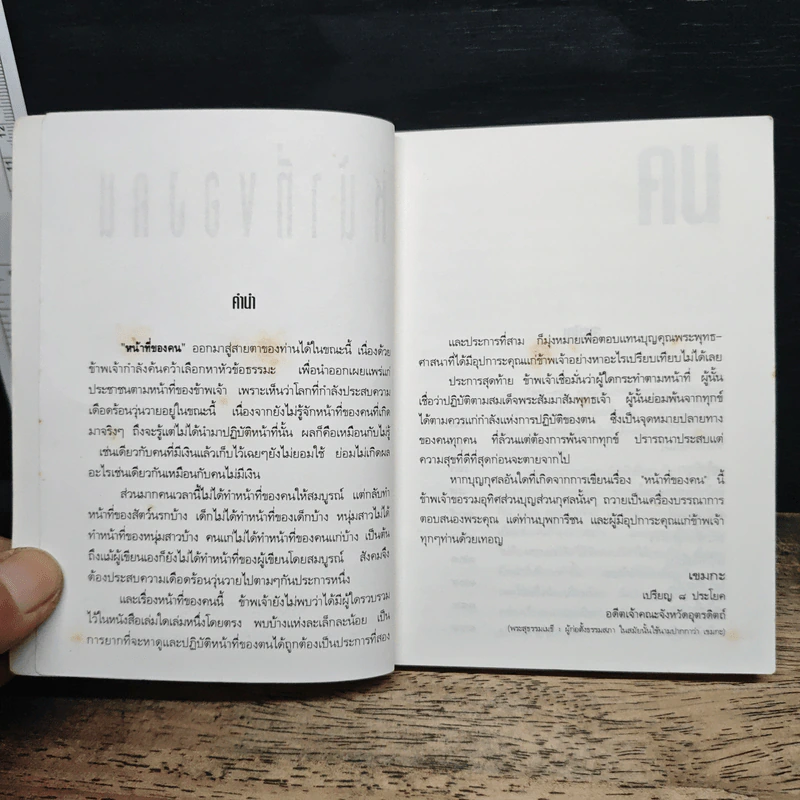 คำนำ
"หน้าที่ของคน" ออกมาสู่สายตาของท่านได้ในขณะนี้ เนื่องด้วย
ข้าพเจ้ากำลังค้นคว้าเลือกหาหัวข้อธรรมะ เพื่อนำออกเผยแพร่แก่
ประชาชนตามหน้าที่ของข้าพเจ้า เพราะเห็นว่าโลกที่กำลังประสบความ
เดือดร้อนวุ่นวายอยู่ในขณะนี้ เนื่องจากยังไม่รู้จักหน้าที่ของคนที่เกิด
มาจริงๆ ถึงจะรู้แต่ไม่ได้นำมาปฏิบัติหน้าที่นั้น ผลก็คือเหมือนกับไม่รู้
เช่นเดียวกับ คนที่มีเงินแล้วเก็บไว้เฉยๆยังไม่ยอมใช้ ย่อมไม่เกิดผล
อะไรเช่นเดียวกันเหมือนกับคนไม่มีเงิน
ส่วนมากคนเวลานี้ไม่ได้ทำหน้าที่ของคนให้สมบูรณ์ แต่กลับทำ
หน้าที่ของสัตว์นรกบ้าง เด็กไม่ได้ทำหน้าที่ของเด็กบ้าง หนุ่มสาวไม่ได้
ทำหน้าที่ของหนุ่มสาวบ้าง คนแก่ไม่ได้ทำหน้าที่ของคนแก่บ้าง เป็นต้น
ถึงแม้ผู้เขียนเองก็ยังไม่ได้ทำหน้าที่ของผู้เขียนโดยสมบูรณ์ สังคมจึง
ต้องประสบความเดือดร้อนวุ่นวายไปตามๆกันประการหนึ่ง
และเรื่องหน้าที่ของคนนี้ ข้าพเจ้ายังไม่พบว่าได้มีผู้ใดรวบรวม
ไว้ในหนังสือเล่มใดเล่มหนึ่งโดยตรง พบบ้างแห่งละเล็กละน้อย เป็น
การยากที่จะหาดูและปฏิบัติหน้าที่ของตนได้ถูกต้องเป็นประการที่สอง
และประการที่สาม ก็มุ่งหมายเพื่อตอบแทนบุญคุณพระพุทธ-
ศาสนาที่ได้มีอุปการะคุณแก่ข้าพเจ้าอย่างหาอะไรเปรียบเทียบไม่ได้เลย
ประการสุดท้าย ข้าพเจ้าเชื่อมั่นว่าผู้ใดกระทำตามหน้าที่ ผู้นั้น
เชื่อว่าปฏิบัติตามสมเด็จพระสัมมาสัมพุทธเจ้า ผู้นั้นย่อมพ้นจากทุกข์
ได้ตามควรแก่กำลังแห่งการปฏิบัติของตน ซึ่งเป็นจุดหมายปลายทาง
ของคนทุกคน ที่ล้วนแต่ต้องการพ้นจากทุกข์ ปรารถนาประสบแต่
ความสุขที่ดีที่สุดก่อนจะตายจากไป
หากบุญกุศลอันใดที่เกิดจากการเขียนเรื่อง "หน้าที่ของคน" นี้
ข้าพเจ้าขอรวมอุทิศส่วนบุญส่วนกุศลนั้นๆ ถวายเป็นเครื่องบรรณาการ
ตอบสนองพระคุณ แด่ท่านบุพการีชน และผู้มีอุปการะคุณแก่ข้าพเจ้า
ทุกๆท่านด้วยเทอญ
เขมกะ
เปรียญ ๘ ประโยค
อดีตเจ้าคณะจังหวัดอุตรดิตถ์
(พระสุธรรมเมธี : ผู้ก่อตั้งธรรมสภา ในสมัยนั้นใช้นามปากกาว่า เขมกะ)